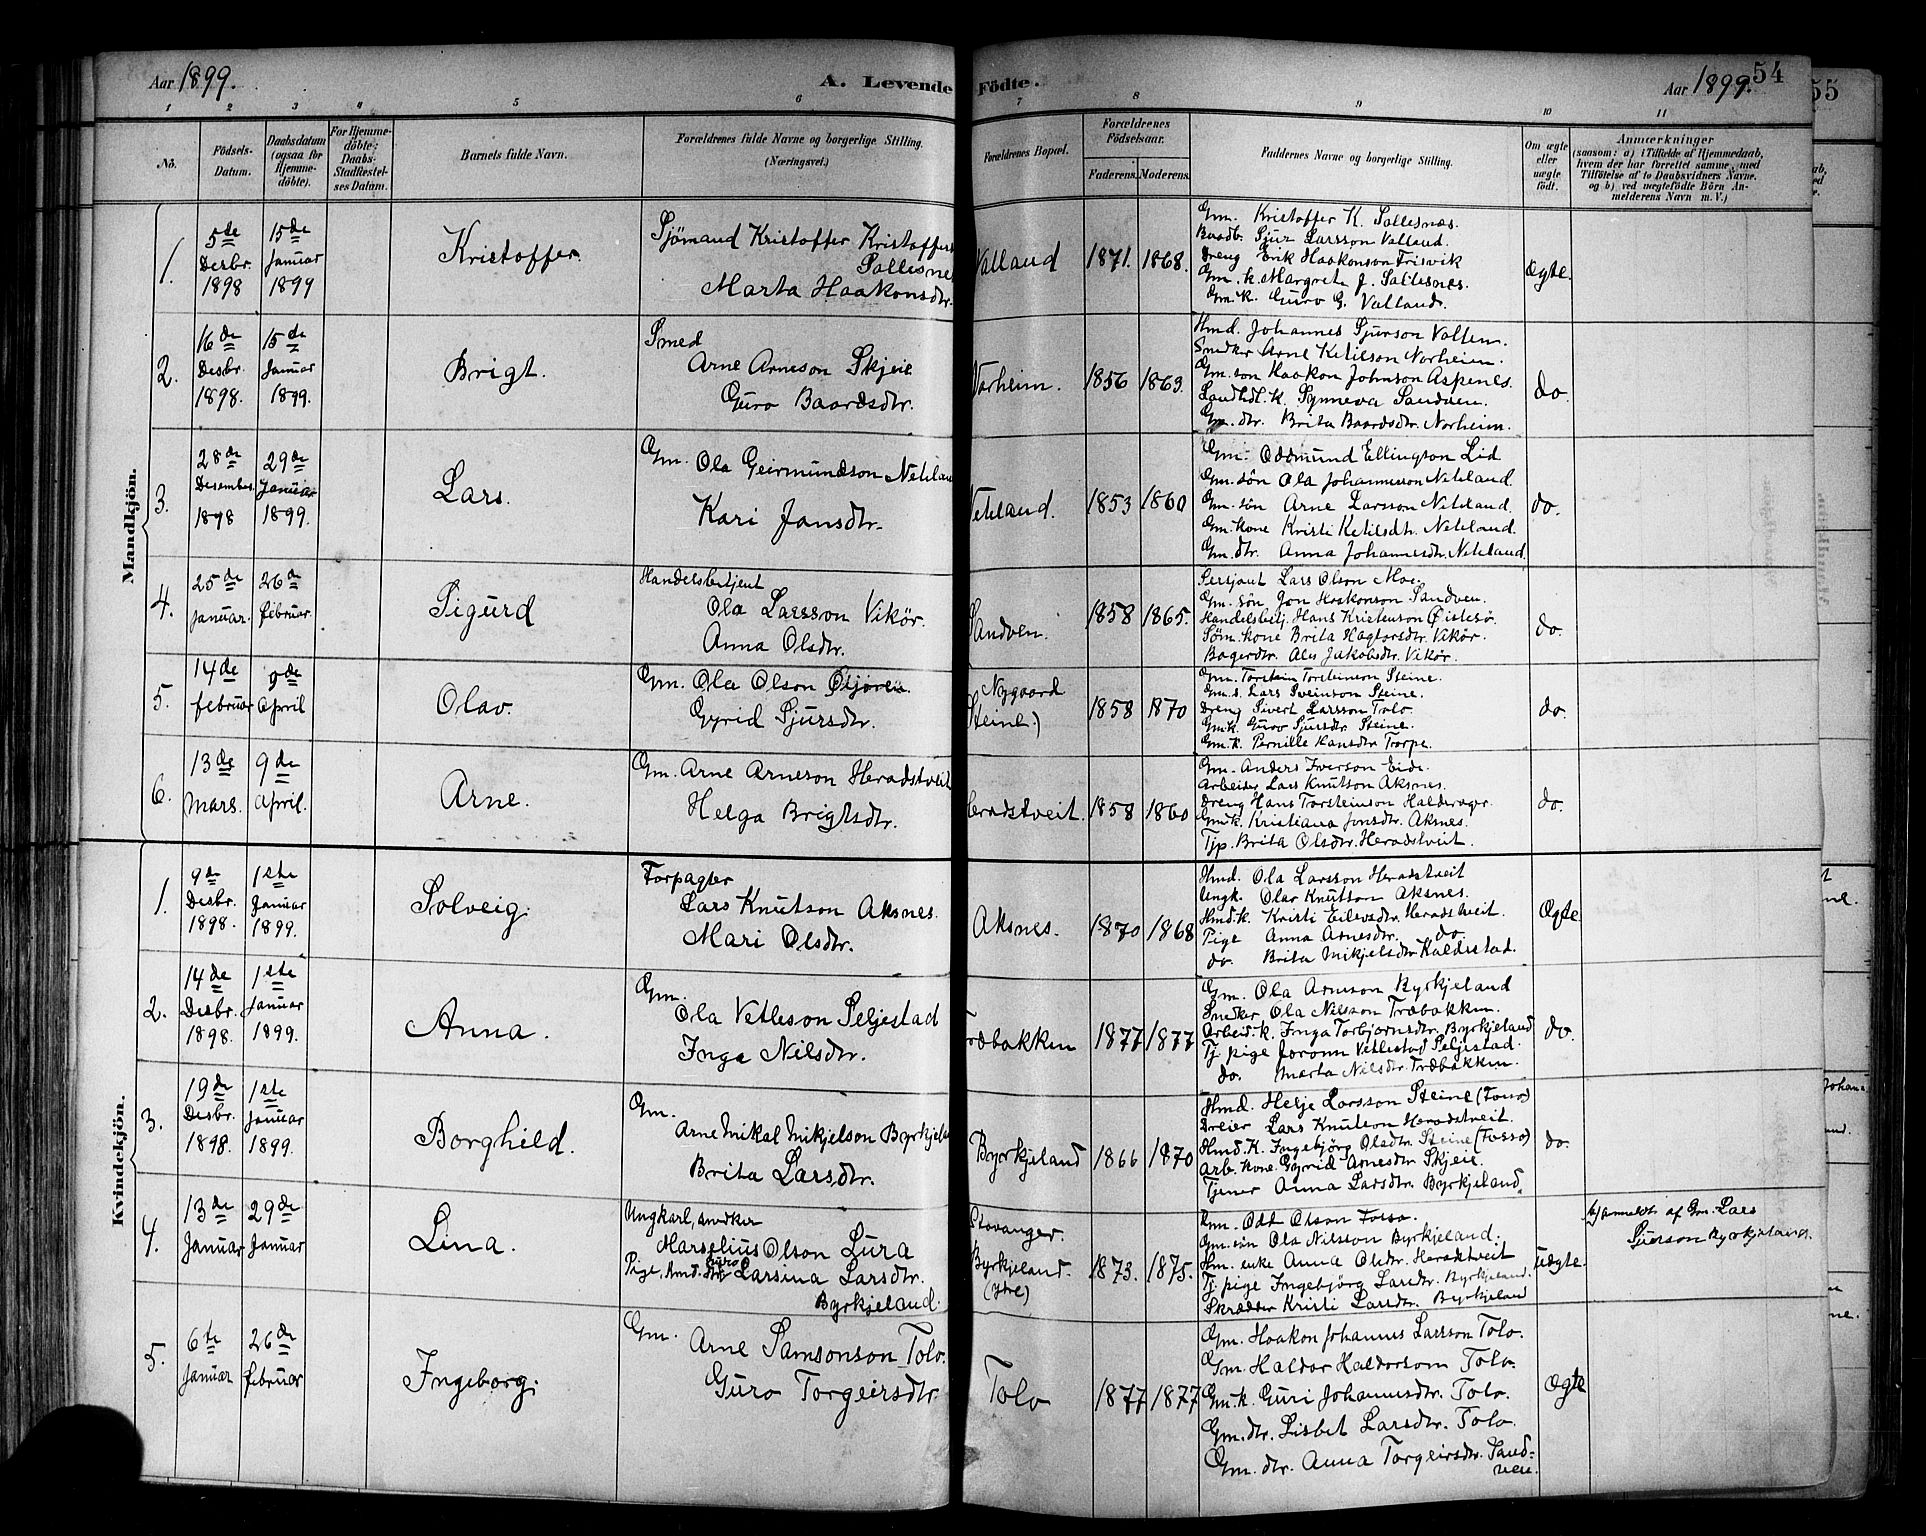 Aar 1899.
A. Levende Födte.
Aar 1899.
54
55
1 2 3 4 5 6 7 8 9 10 11
No.
Födsels-Datum.
Daabsdatum (ogsaa for Hjemme-döbte).
For Hjemme-döbte: Daabs-Stadfæstel-ses Datum.
Barnets fulde Navn.
Forældrenes fulde Navne og borgerlige Stilling.
(Næringsvei.)
Forældrenes Bopæl.
Forældrenes Födselsaar.
Faderens. Moderens.
Faddernes Navne og borgerlige Stilling.
Om ægte eller uægte födt.
Anmærkninger
(saasom: a) i Tilfælde af Hjemmedaab, hvem der har forrettet samme, med Tilföielse af to Daabsvidners Navne. og b) ved uægtefödte Börn An-melderens Navn m. V.)
Mandkjön.
1. 5te Desbr. 1898 15de Januar 1899 Kristoffer
Sjömand Kristoffer Kristoffers
Sallesnes
Marta Haakonsdtr.
Valland 1871. 1868.
Gm. Kristoffer K. Sallesnæs.
Baadb. Sjur Larsson Valland.
Dreng Erik Haakonson Trisvik
Gm. k. Margreta J. Sallesnæs.
Gm. k. Guro G. Valland.
Ægte.
2. 16de Desbr. 1898. 15de Januar 1899. Brigt.
Smed
Arne Arneson Skjeie
Guro Baardsdtr.
Norheim. 1856 1863.
Hmd. Johannes Sjurson Valten.
Snedker Arne Ketilson Norheim.
Gm. son Haakon Johnson Aspenes.
Landhdl. k. Synneva Sandven.
Gm. dtr. Brita Baardsdtr. Norheim.
do.
3. 28de Desember 1898 29de Januar 1899. Lars.
Gm. Ola Geirmundson Neteland
Kari Jonsdtr.
Neteland. 1853 1860
Gm. Oddmund Ellingson Lid
Gm. sön Ola Johannesson Neteland.
Gm. sön Arne Larsson Neteland.
Gm. kone Kristi Ketilsdtr. Neteland.
Gm. dtr. Anna Johannesdtr. Neteland.
do.
4. 25de Januar. 26de februar. Sigurd
Handelsbetjent
Ola Larsson Vikör.
Anna Olsdtr.
Sandven. 1858 1865.
Sersjant Lars Olson Moe.
Gm. sön Jon Haakonson Sandven.
Handelsbetj. Hans Kristenson Öistesö.
Söm. kone Brita Hagtorsdtr. Vikör.
Bagerdtr. Ales Jakobsdtr. Vikör.
do.
5. 14de februar 9de April Olav.
Gm. Ola Olson
Gyrid Sjursdtr.
Nygaard
Steine) 1858 1870
Gm. Torstein Torsteinson Steine.
Gm. s. Lars Sveinson Steine.
Dreng Sivert Larsson Tolo
Gm.k. Guro Sjursdtr Steine.
Gm.k. Pernille Hansdtr Torpe.
do.
6. 13de Mars. 9de April. Arne.
Gm. Arne Arneson Heradstveit
Helga Brigtsdtr.
Heradstveit. 1858 1860
Gm. Anders Iverson Eide
Arbeider Lars Knutson Aksnes.
Dreng Hans Torsteinson
Gm.k. Kristiana Jonsdtr. Aksnes.
Tjp. Brita Olsdtr. Heradstveit.
do.
Kvindekjön.
1. 9de Desbr. 1898. 1ste Januar 1899. Solveig.
Forpagter
Lars Knutson Aksnes.
Mari Olsdtr.
Aksnes. 1870 1868
Hmd. Ola Larsson Heradstveit
Ungk. Olav Knutson Aksnes.
Hmd.k. Kristi Eilevsdtr. Heradstveit.
Pige Anna Arnesdtr. do.
do. Brita Mikjelsdtr
Ægte
2. 14de Desbr. 1898. 1ste Januar 1899. Anna.
Gm.
Ola Vetleson Seljestad
Inga Nilsdtr.
Træbakken 1877 1877
Gm. Ola Arneson Byrkjeland
Snedker Ola Nilsson Træbakken.
Arbeid.k. Inga Torbjørnsdtr. Byrkjeland
Tj. pige Joronn Seljestad.
do. Marta Nilsdtr. Træbakken.
do.
3. 19de Desbr. 1898. 1ste Januar 1899. Borghild.
Gm.
Arne Mikal Mikjelson Byrkjeland
Brita Larsdtr.
Byrkjeland 1866 1870
Hmd. Helje Larsson Steine (Fosso)
Dreier Lars Knutson Heradstveit
Hmd. K. Ingebjörg Olsdtr. Steine (Fosso)
Arb. kone Gyrid Arnesdtr. Skjeie.
Tjener Anna Larsdtr. Byrkjeland.
do.
4. 13de Januar 29de Januar Lina.
Ungkarl, snedker
Marselius Olson Lura
Pige, Hmd. dtr. Guro Larsina Larsdtr.
Byrkjeland.
Stavanger.
Byrkjeland.
(ytre) 1873. 1875.
Gm. Odt Olson Fosso.
Gm. sön Ola Nilsson Byrkjeland.
Hm. enke Anna Olsdtr. Heradstveit
Tj. pige Ingebjörg Larsdtr. Byrkjeland.
Skrædder Kristi Larsdtr. Byrkjeland
Uægte.
b) anmeldt af Gm. Lars
Sjurson Byrkjeland.
5. 6te Januar 26de februar Ingeborg.
Gm. Arne Samsonson Tolo.
Guro Torgeirsdtr
Tolo 1877 1877
Gm. Haakon Johannes Larsson Tolo.
Gm. Haldor Haldorson Tolo.
Gm. k. Guri Johannesdtr. Tolo.
Gm. dtr. Lisbet Larsdtr. Tolo.
Gm. dtr. Anna Torgeirsdtr. Sand-
ven.
Ægte